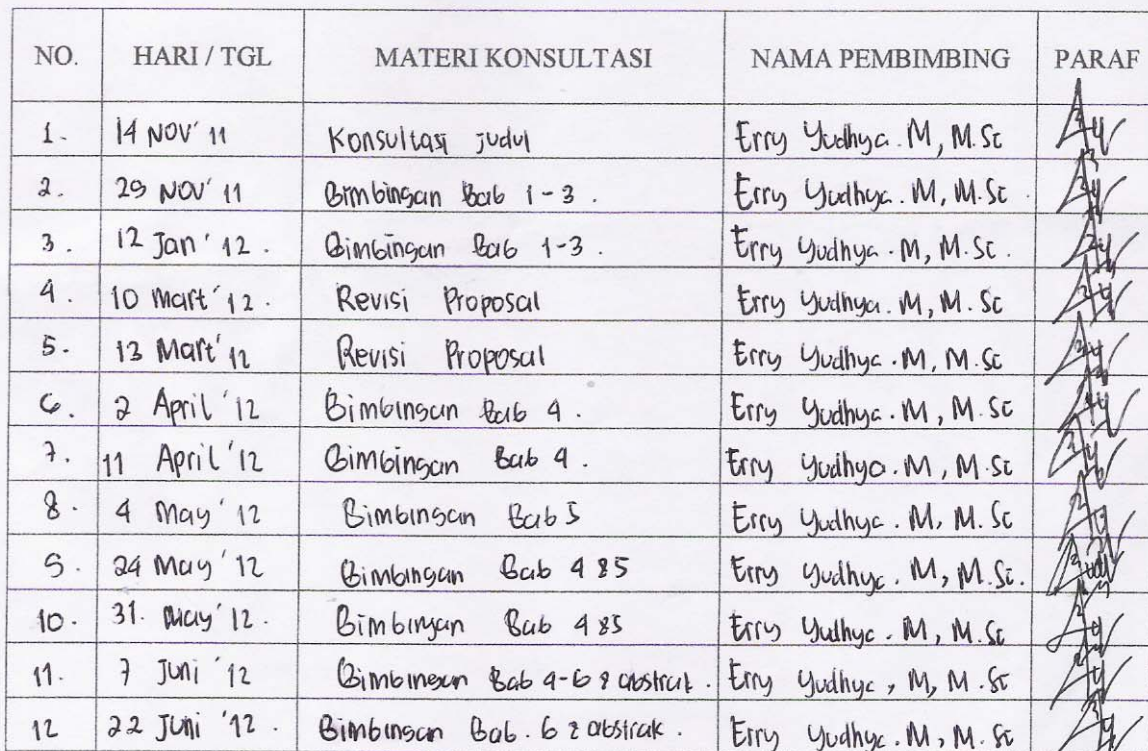 NO. HARI / TGL MATERI KONSULTASI NAMA PEMBIMBING PARAF
1. 14 NOV' 11 Konsultasi judul Erry Yudhya. M, M.Sc
2. 29 NOV' 11 Bimbingan Bab 1-3. Erry Yudhya. M, M.Sc.
3. 12 Jan' 12. Bimbingan Bab 1-3. Erry Yudhya. M, M.Sc.
4. 10 Mart' 12. Revisi Proposal Erry Yudhya. M, M.Sc
5. 13 Mart' 12 Revisi Proposal Erry Yudhya. M, M.Sc
6. 2 April '12 Bimbingan Bab 4. Erry Yudhya. M, M.Sc
7. 11 April '12 Bimbingan Bab 4. Erry Yudhya. M, M.Sc
8. 4 May '12 Bimbingan Bab 5 Erry Yudhya. M, M.Sc
9. 24 May '12 Bimbingan Bab 4 & 5 Erry Yudhya. M, M.Sc.
10. 31. May '12. Bimbingan Bab 4 & 5 Erry Yudhya. M, M.Sc
11. 7 Juni '12 Bimbingan Bab 4-6 & abstrak. Erry Yudhya, M, M.Sc
12 22 Juni '12. Bimbingan Bab. 6 & abstrak. Erry Yudhya. M, M.Sc